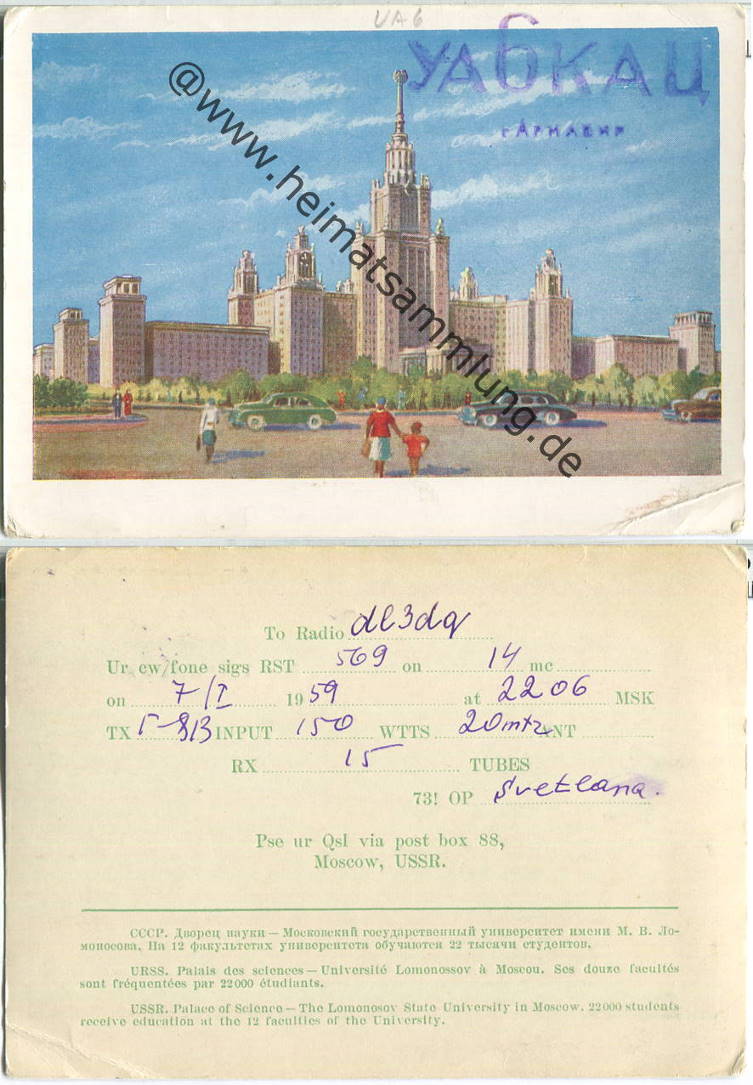 UA6
УА6КАЦ
г АРМАВИР
@www.heimatsammlung.de
To Radio dl3dq
Ur cw/fone sigs RST 569 on 14 mc
on 7/I 1959 at 2206 MSK
TX Г-813 INPUT 150 WTTS 20mtz ANT
RX 15 TUBES
73! OP Svetlana.
Pse ur Qsl via post box 88,
Moscow, USSR.
СССР. Дворец науки — Московский государственный университет имени М. В. Ло-
моносова. На 12 факультетах университета обучаются 22 тысячи студентов.
URSS. Palais des sciences — Université Lomonossov à Moscou. Ses douze facultés
sont fréquentées par 22000 étudiants.
USSR. Palace of Science — The Lomonosov State University in Moscow. 22000 students
receive education at the 12 faculties of the University.